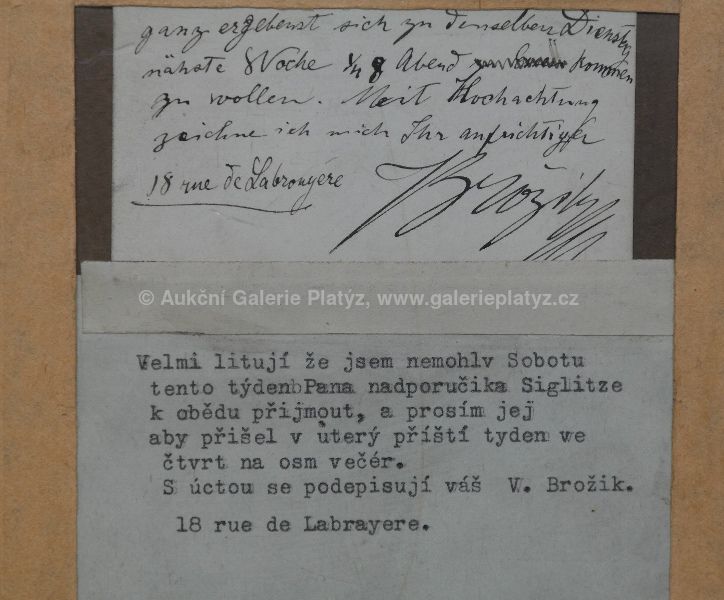 ganz ergebenst sich zu denselben Dienstag
nähste Woche 1/4 8 Abend kommen
zu wollen. Mit Hochachtung
zeichne ich mich Ihr aufrichtiger
18 rue de Labrouyére
V Brožik
© Aukční Galerie Platýz, www.galerieplatyz.cz
Velmi litují že jsem nemohlv Sobotu
tento týdenbPana nadporučika Siglitze
k obědu přijmout, a prosím jej
aby přišel v úterý příští tyden ve
čtvrt na osm večér.
S úctou se podepisují váš V. Brožik.
18 rue de Labrayere.